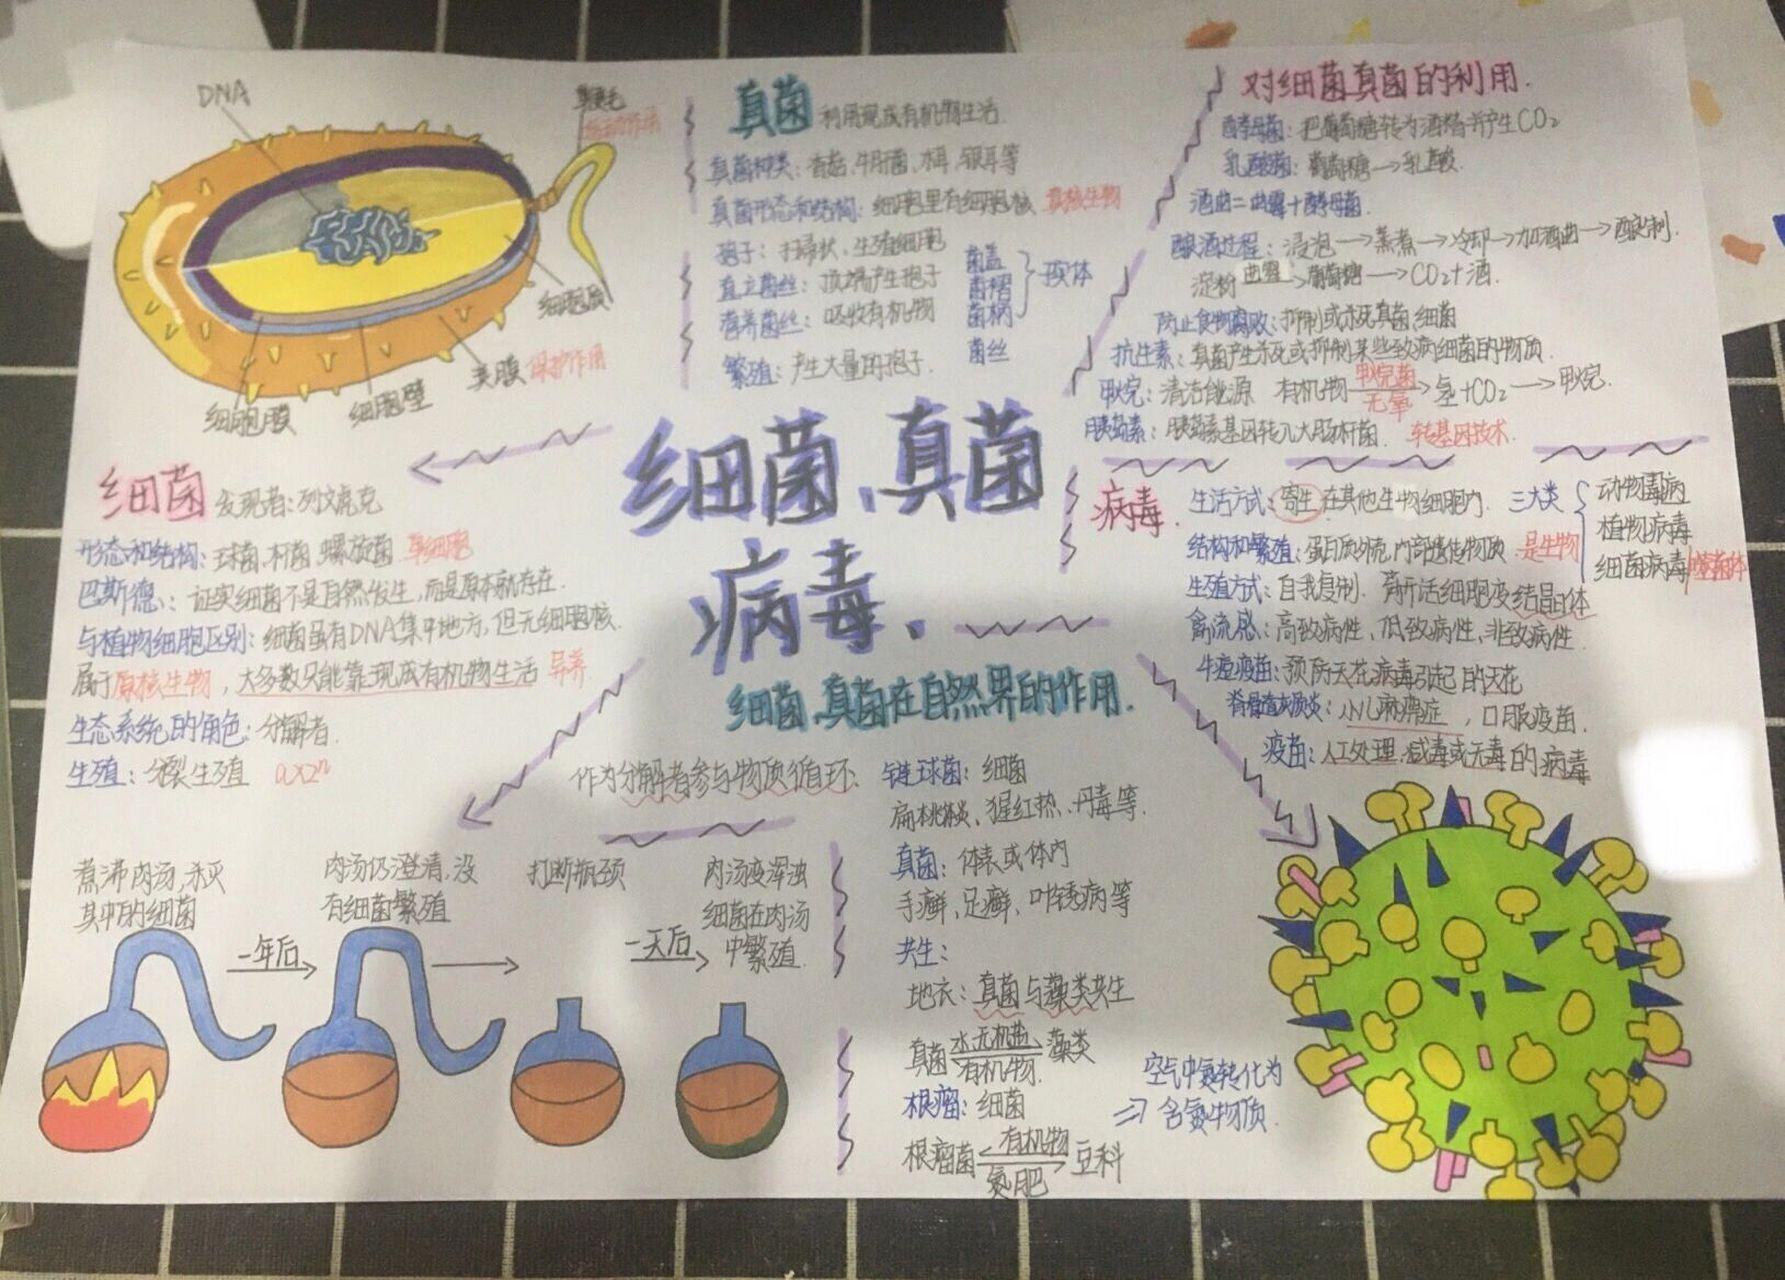 DNA
鞭毛
运动作用
细胞质
荚膜 保护作用
细胞壁
细胞膜
真菌 利用现成有机物生活.
真菌种类: 香菇、牛肝菌、木耳、银耳等
真菌形态和结构: 细胞里有细胞核 真核生物
孢子: 扫帚状、生殖细胞
直立菌丝: 顶端产生孢子
营养菌丝: 吸收有机物
繁殖: 产生大量的孢子.
菌盖
菌褶
菌柄
菌丝
对细菌真菌的利用.
酵母菌: 把葡萄糖转为酒精并产生CO₂
乳酸菌: 葡萄糖→乳酸.
酒曲=曲霉+酵母菌.
酿酒过程: 浸泡→蒸煮→冷却→加酒曲→酿制.
淀粉 曲霉→ 葡萄糖→CO₂+酒.
防止食物腐败: 抑制或杀死真菌、细菌
抗生素: 真菌产生杀死或抑制某些致病细菌的物质.
甲烷: 清洁能源 有机物 甲烷菌→ 无氧 氢+CO₂→甲烷.
胰岛素: 胰岛素基因转入大肠杆菌. 转基因技术.
细菌、真菌
病毒、
细菌 发现者: 列文虎克
形态和结构: 球菌、杆菌、螺旋菌 单细胞
巴斯德: 证实细菌不是自然发生, 而是原本就存在.
与植物细胞区别: 细菌虽有DNA集中地方, 但无细胞核.
属于原核生物, 大多数只能靠现成有机物生活 异养
生态系统的角色: 分解者.
生殖: 分裂生殖 a×2ⁿ
病毒.
生活方式: 寄生 在其他生物细胞内.
三大类
动物病毒
植物病毒
细菌病毒 噬菌体
结构和繁殖: 蛋白质外壳, 内部遗传物质 是生物
生殖方式: 自我复制. 离开活细胞变结晶体
禽流感: 高致病性、低致病性、非致病性.
牛痘疫苗: 预防天花病毒引起的天花
脊骨遗灰质炎: 小儿麻痹症, 口服疫苗.
疫苗: 人工处理. 减毒或无毒的病毒
细菌、真菌在自然界的作用.
作为分解者参与物质循环.
链球菌: 细菌
扁桃体炎、猩红热、丹毒等.
真菌: 体表或体内
手癣、足癣、叶锈病等
共生:
地衣: 真菌与藻类共生
真菌 水.无机盐 有机物. 藻类
根瘤: 细菌
根瘤菌 有机物 氮肥 豆科
空气中氮转化为
⇒ 含氮物质.
煮沸肉汤, 杀灭
其中的细菌
一年后
肉汤仍澄清, 没
有细菌繁殖
打断瓶颈
一天后
肉汤变浑浊
细菌在肉汤
中繁殖.